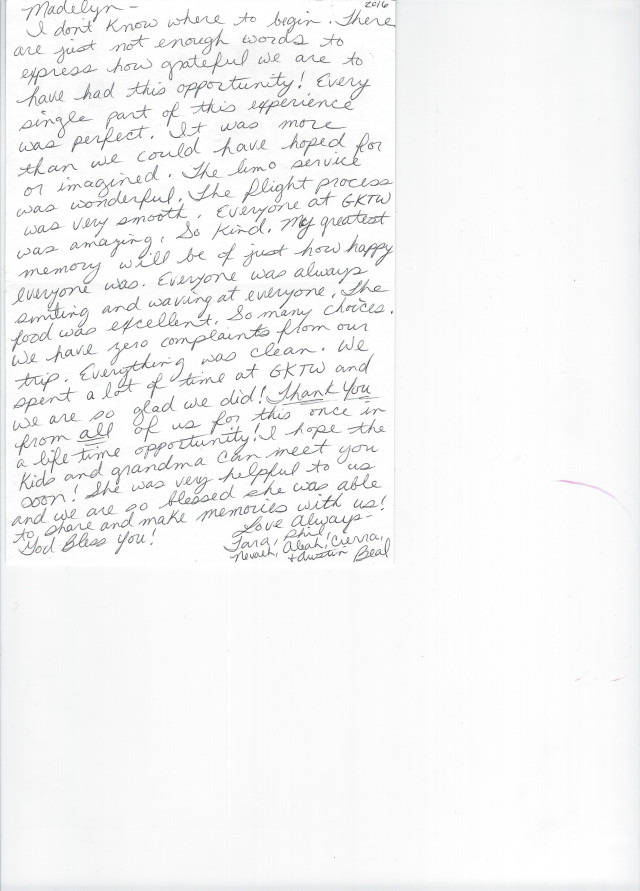 2016
Madelyn -
I don't know where to begin. There
are just not enough words to
express how grateful we are to
have had this opportunity! Every
single part of this experience
was perfect. It was more
than we could have hoped for
or imagined. The limo service
was wonderful. The flight process
was very smooth. Everyone at GKTW
was amazing. So kind. My greatest
memory will be of just how happy
everyone was. Everyone was always
smiling and waving at everyone. The
food was excellent. So many choices.
We have zero complaints from our
trip. Everything was clean. We
spent a lot of time at GKTW and
we are so glad we did! Thank You
from all of us for this once in
a life time opportunity! I hope the
kids and grandma can meet you
soon! She was very helpful to us
and we are so blessed she was able
to share and make memories with us!
God Bless You!
Love Always -
Tara, Phil,
Nevaeh, Aleah, Cierra,
+ Austin Beal